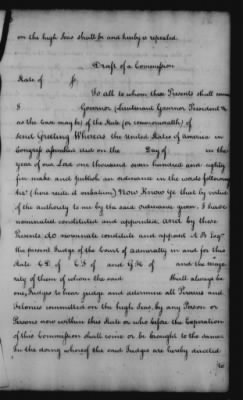 on the high Seas shall be and hereby is repealed.
Draft of a Commission
State of ss.
To all to whom these Presents shall come
I Governor (lieutenant Governor President &c
as the case may be) of the State (or commonwealth) of
send Greeting Whereas the United States of America in
Congress assembled did on the Day of in the
year of our Lord one thousand seven hundred and eighty
five make and publish an ordinance in the words following
viz.t (here recite it verbatim) Now Know Ye that by virtue
of the authority to me by the said ordinance given. I have
nominated constituted and appointed, and by these
Presents do nominate constitute and appoint A B Esq.r
the present Judge of the Court of admiralty in and for this
State C D. of E F. of and G H. of and the majo
rity of them of whom the said Shall always be
one, Judges to hear judge and determine all Piracies and
Felonies committed on the high Seas, by any Person or
Persons now within this State or who before the Expiration
of this Commission shall come or be brought to the same.
In the doing whereof the said Judges are hereby directed
to